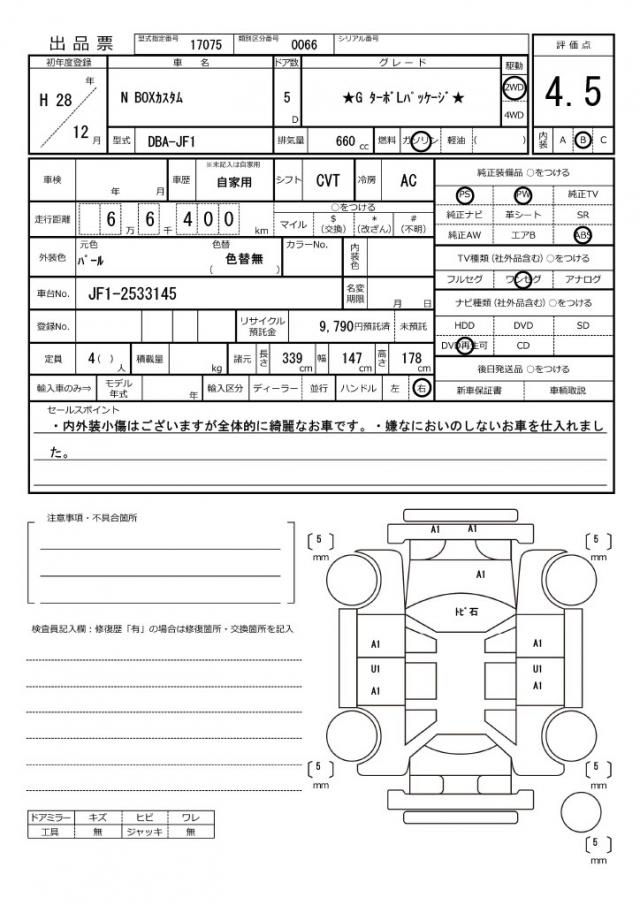 出品票 型式指定番号 17075 類別区分番号 0066 シリアル番号
初年度登録 車 名 ドア数 グレード 駆動 評価点
H 28 年 12 月 N BOXカスタム 5 D ★G ターボLパッケージ★ 2WD 4WD 4.5
型式 DBA-JF1 排気量 660 cc 燃料 ガソリン 軽油 ( ) 内装 A B C
車検 年 月 車歴 ※未記入は自家用 自家用 シフト CVT 冷房 AC
走行距離 6 万 6 千 4 0 0 km ○をつける
マイル $ (交換) * (改ざん) # (不明)
外装色 元色 パール 色替 ( 色替無 ) カラーNo. 内装色
車台No. JF1-2533145 名変期限 月 日
登録No. リサイクル預託金 9,790円預託済 未預託
定員 4 ( ) 人 積載量 kg 諸元 長さ 339 cm 幅 147 cm 高さ 178 cm
輸入車のみ⇒ モデル年式 年 輸入区分 ディーラー 並行 ハンドル 左 右
純正装備品 ○をつける
PS PW 純正TV
純正ナビ 革シート SR
純正AW エアB ABS
TV種類 (社外品含む) ○をつける
フルセグ ワンセグ アナログ
ナビ種類 (社外品含む) ○をつける
HDD DVD SD
DVD再生可 CD
後日発送品 ○をつける
新車保証書 車輌取説
セールスポイント
・内外装小傷はございますが全体的に綺麗なお車です。・嫌なにおいのしないお車を仕入れまし
た。
注意事項・不具合箇所
検査員記入欄：修復歴「有」の場合は修復箇所・交換箇所を記入
ドアミラー キズ ヒビ ワレ
工具 無 ジャッキ 無
A1 A1
〔 5 〕 mm 〔 5 〕 mm
A1
トビ石
A1 A1
U1 U1
A1 A1
〔 5 〕 mm 〔 5 〕 mm
〔 5 〕 mm